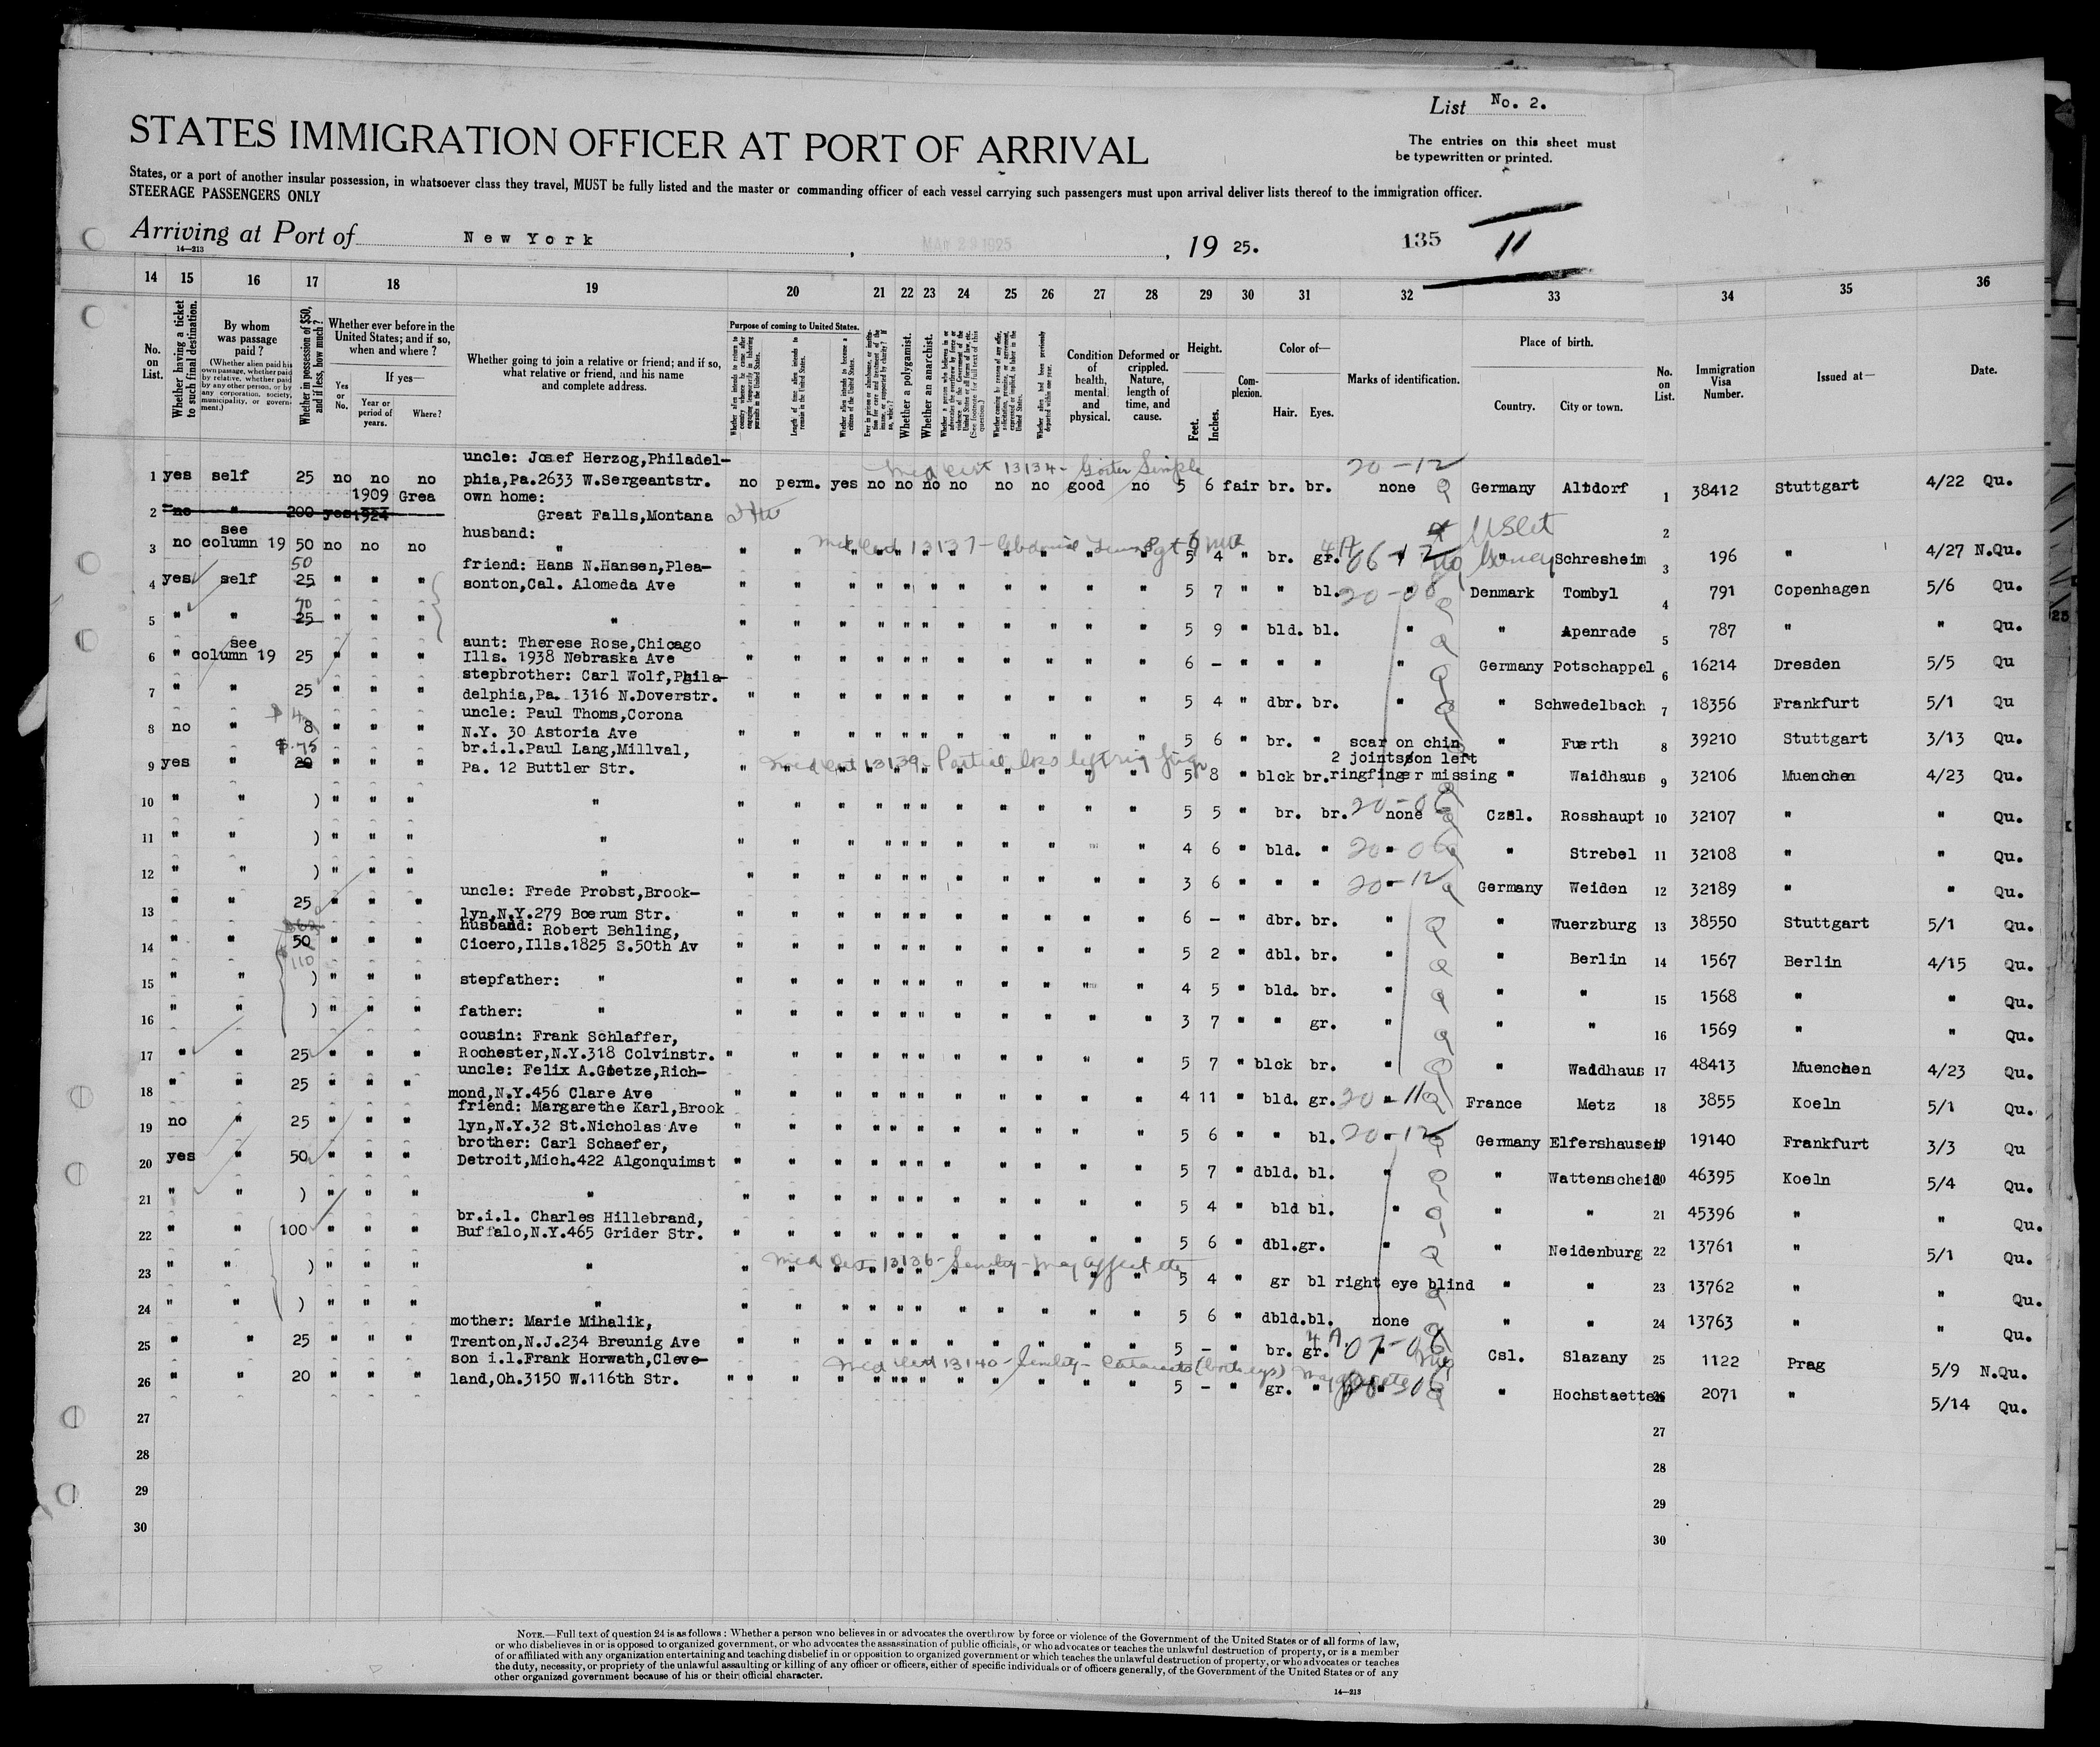 List No. 2.
STATES IMMIGRATION OFFICER AT PORT OF ARRIVAL
The entries on this sheet must
be typewritten or printed.
States, or a port of another insular possession, in whatsoever class they travel, MUST be fully listed and the master or commanding officer of each vessel carrying such passengers must upon arrival deliver lists thereof to the immigration officer.
STEERAGE PASSENGERS ONLY
Arriving at Port of New York, MAY 1925, 19 25. 135 11
14—213
14 15 16 17 18 19 20 21 22 23 24 25 26 27 28 29 30 31 32 33 34 35 36
No. on List.
Whether having a ticket to such final destination.
By whom was passage paid?
(Whether alien paid his own passage, whether paid by relative, whether paid by any other person, or by any corporation, society, municipality, or government.)
Whether in possession of $50, and if less, how much?
Whether ever before in the United States; and if so, when and where?
If yes—
Yes or No.
Year or period of years.
Where?
Whether going to join a relative or friend; and if so, what relative or friend, and his name and complete address.
Purpose of coming to United States.
Length of time alien intends to remain in the United States.
Whether alien intends to become a citizen of the United States.
Whether a polygamist.
Whether an anarchist.
Condition of health, mental and physical.
Deformed or crippled. Nature, length of time, and cause.
Height.
Feet. Inches.
Complexion.
Color of—
Hair. Eyes.
Marks of identification.
Place of birth.
Country. City or town.
No. on List.
Immigration Visa Number.
Issued at—
Date.
uncle: Josef Herzog,Philadel-
Med cert 13134 - Goiter Simple 20-12
1 yes self 25 no no no phia,Pa.2633 W.Sergeantstr. no perm. yes no no no no no no good no 5 6 fair br. br. none Germany Altdorf 1 38412 Stuttgart 4/22 Qu.
1909 Grea own home:
2 no " 200 yes 1924 Great Falls,Montana 2
see husband:
3 no column 19 50 no no no " " " " " " " " " " " " 5 4 " br. gr. " Schresheim 3 196 " 4/27 N.Qu.
50 friend: Hans N.Hansen,Plea-
4 yes self 25 " " " sonton,Cal. Alomeda Ave " " " " " " " " " " " 5 7 " " bl. 20-08 " Denmark Tombyl 4 791 Copenhagen 5/6 Qu.
70
5 " " 25 " " " " " " " " " " " " " " " 5 9 " bld. bl. " " Apenrade 5 787 " " Qu.
see aunt: Therese Rose,Chicago
6 " column 19 25 " " " Ills. 1938 Nebraska Ave " " " " " " " " " " " 6 - " " " " Germany Potschappel 6 16214 Dresden 5/5 Qu
stepbrother: Carl Wolf,Phila-
7 " " 25 " " " delphia,Pa. 1316 N.Doverstr. " " " " " " " " " " " 5 4 " dbr. br. " " Schwedelbach 7 18356 Frankfurt 5/1 Qu
uncle: Paul Thoms,Corona
8 no " 8 " " " N.Y. 30 Astoria Ave " " " " " " " " " " " 5 6 " br. " scar on chin " Fuerth 8 39210 Stuttgart 3/13 Qu.
$.75 br.i.l.Paul Lang,Millval, 2 joints on left
Med cert 13139 - Partial loss left ring finger
9 yes " 20 " " " Pa. 12 Buttler Str. " " " " " " " " " " " 5 8 " blck br. ringfinger missing " Waidhaus 9 32106 Muenchen 4/23 Qu.
10 " " ) " " " " " " " " " " " " " " " 5 5 " br. br. none Czsl. Rosshaupt 10 32107 " " Qu.
11 " " ) " " " " " " " " " " " " " " " 4 6 " bld. " 20-06 " " Strebel 11 32108 " " Qu.
12 " " ) " " " " " " " " " " " " " " " 3 6 " " " 20-12 " Germany Weiden 12 32189 " " Qu.
uncle: Frede Probst,Brook-
13 " " 25 " " " lyn,N.Y.279 Boerum Str. " " " " " " " " " " " 6 - " dbr. br. " " Wuerzburg 13 38550 Stuttgart 5/1 Qu.
husband: Robert Behling,
14 " " 50 " " " Cicero,Ills.1825 S.50th Av " " " " " " " " " " " 5 2 " dbl. br. " " Berlin 14 1567 Berlin 4/15 Qu.
110
15 " " ) " " " stepfather: " " " " " " " " " " " " 4 5 " bld. br. " " " 15 1568 " " Qu.
16 " " ) " " " father: " " " " " " " " " " " " 3 7 " " gr. " " " 16 1569 " " Qu.
cousin: Frank Schlaffer,
17 " " 25 " " " Rochester,N.Y.318 Colvinstr. " " " " " " " " " " " 5 7 " blck br. " " Waddhaus 17 48413 Muenchen 4/23 Qu.
uncle: Felix A.Goetze,Rich-
18 " " 25 " " " mond,N.Y.456 Clare Ave " " " " " " " " " " " 4 11 " bld. gr. 20-11 " France Metz 18 3855 Koeln 5/1 Qu.
friend: Margarethe Karl,Brook
19 no " 25 " " " lyn,N.Y.32 St.Nicholas Ave " " " " " " " " " " " 5 6 " " bl. 20-12 " Germany Elfershausen 19 19140 Frankfurt 3/3 Qu
brother: Carl Schaefer,
20 yes " 50 " " " Detroit,Mich.422 Algonquimst " " " " " " " " " " " 5 7 " dbld. bl. " " Wattenscheid 20 46395 Koeln 5/4 Qu.
21 " " ) " " " " " " " " " " " " " " " 5 4 " bld bl. " " " 21 45396 " " Qu.
br.i.l. Charles Hillebrand,
22 " " 100 " " " Buffalo,N.Y.465 Grider Str. " " " " " " " " " " " 5 6 " dbl.gr. " " Neidenburg 22 13761 " 5/1 Qu.
Med cert 13136 - Senility - may affect
23 " " ) " " " " " " " " " " " " " " " 5 4 " gr bl right eye blind " " 23 13762 " " Qu.
24 " " ) " " " " " " " " " " " " " " " 5 6 " dbld.bl. none " " 24 13763 " " Qu.
mother: Marie Mihalik,
25 " " 25 " " " Trenton,N.J.234 Breunig Ave " " " " " " " " " " " 5 - " br. gr. " Csl. Slazany 25 1122 Prag 5/9 N.Qu.
son i.l.Frank Horwath,Cleve-
Med cert 13140 - Senility - Cataracts (both eyes)
26 " " 20 " " " land,Oh.3150 W.116th Str. " " " " " " " " " " " 5 - " gr. " " " Hochstaetten 26 2071 " 5/14 Qu.
27 27
28 28
29 29
30 30
NOTE.—Full text of question 24 is as follows: Whether a person who believes in or advocates the overthrow by force or violence of the Government of the United States or of all forms of law,
or who disbelieves in or is opposed to organized government, or who advocates the assassination of public officials, or who advocates or teaches the unlawful destruction of property, or is a member
of or affiliated with any organization entertaining and teaching disbelief in or opposition to organized government or which teaches the unlawful destruction of property, or who advocates or teaches
the duty, necessity, or propriety of the unlawful assaulting or killing of any officer or officers, either of specific individuals or of officers generally, of the Government of the United States or of any
other organized government because of his or their official character.
14—213